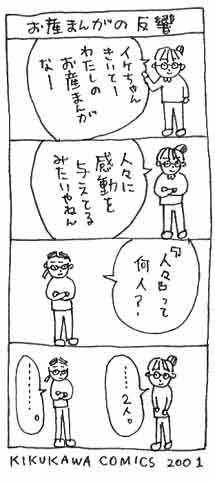 お産まんがの反響
イケちゃん
きいてー
わたしの
お産まんが
なー
人々に
感動を
与えてる
みたいやねん
『人々』って
何人？
……２人。
……。
KIKUKAWA COMICS 2001